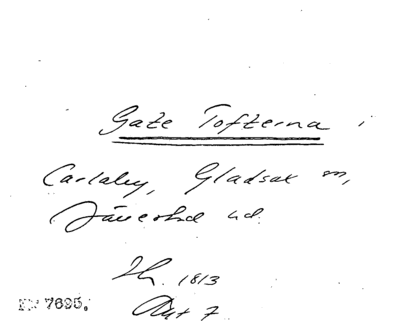 Gate Tofterna i
Carlaby, Gladsax m,
Järrestad hd
1813
Akt 7
7695.